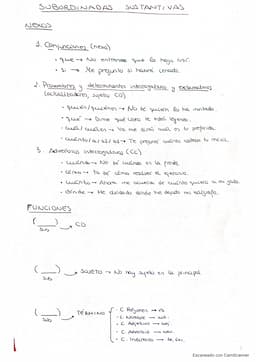 SUBORDINADAS SUSTANTIVAS
NEXOS
1. Conjunciones (nexo)
· que → No entiendo que lo haya
· si → Me pregunto si habrá cenado.
2. Pronombres y determinantes interrogativos y exclamativos
(actualizadores, sujeto, CD)
· quién/quiénes → No sé quién lo ha invitado.
· qué → Dime qué libro te estás leyendo.
· cuál/cuáles → Ya me dirá cuál es tu preferido.
· cuánto/a/os/as → Te pregunté cuánto
3. Adverbios interrogativos (CC)
· cuándo → No sé cuándo es la fiesta.
· cómo → Ya sé cómo resolver el ejercicio.
· cuánto → Ahora me acuerdo de cuánto quiero a mi gato.
· dónde → He olvidado dónde he dejado mi
FUNCIONES
(____) → CD
Sub
(____) → SUJETO → No hay sujeto en la principal
Sub
(____) → TÉRMINO
Sub
- C. Régimen → vb.
- C. Nombre → sust.
- C. Adjetivo → adj.
- C. Adverbio → adv.
- C. Indirecto →
Escaneado con CamScanner